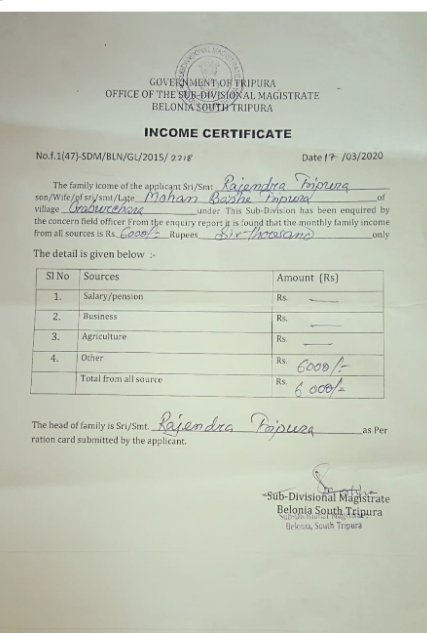 GOVERNMENT OF TRIPURA
OFFICE OF THE SUB-DIVISIONAL MAGISTRATE
BELONIA SOUTH TRIPURA
INCOME CERTIFICATE
No.f.1(47)-SDM/BLN/GL/2015/ 2218 Date 17 /03/2020
The family icome of the applicant Sri/Smt Rajendra Tripura
son/Wife/of sri/smt/Late Mohan Bashi Tripura of
village under This Sub-Division has been enquired by
the concern field officer From the enquiry report it is found that the monthly family income
from all sources is Rs. 6000/- Rupees Six Thousand only
The detail is given below :-
Sl No Sources Amount (Rs)
1. Salary/pension Rs. —
2. Business Rs. —
3. Agriculture Rs. —
4. Other Rs. 6000/-
Total from all source Rs. 6000/-
The head of family is Sri/Smt. Rajendra Tripura as Per
ration card submitted by the applicant.
Sub-Divisional Magistrate
Belonia South Tripura
Sub-Divisional Magistrate
Belonia, South Tripura